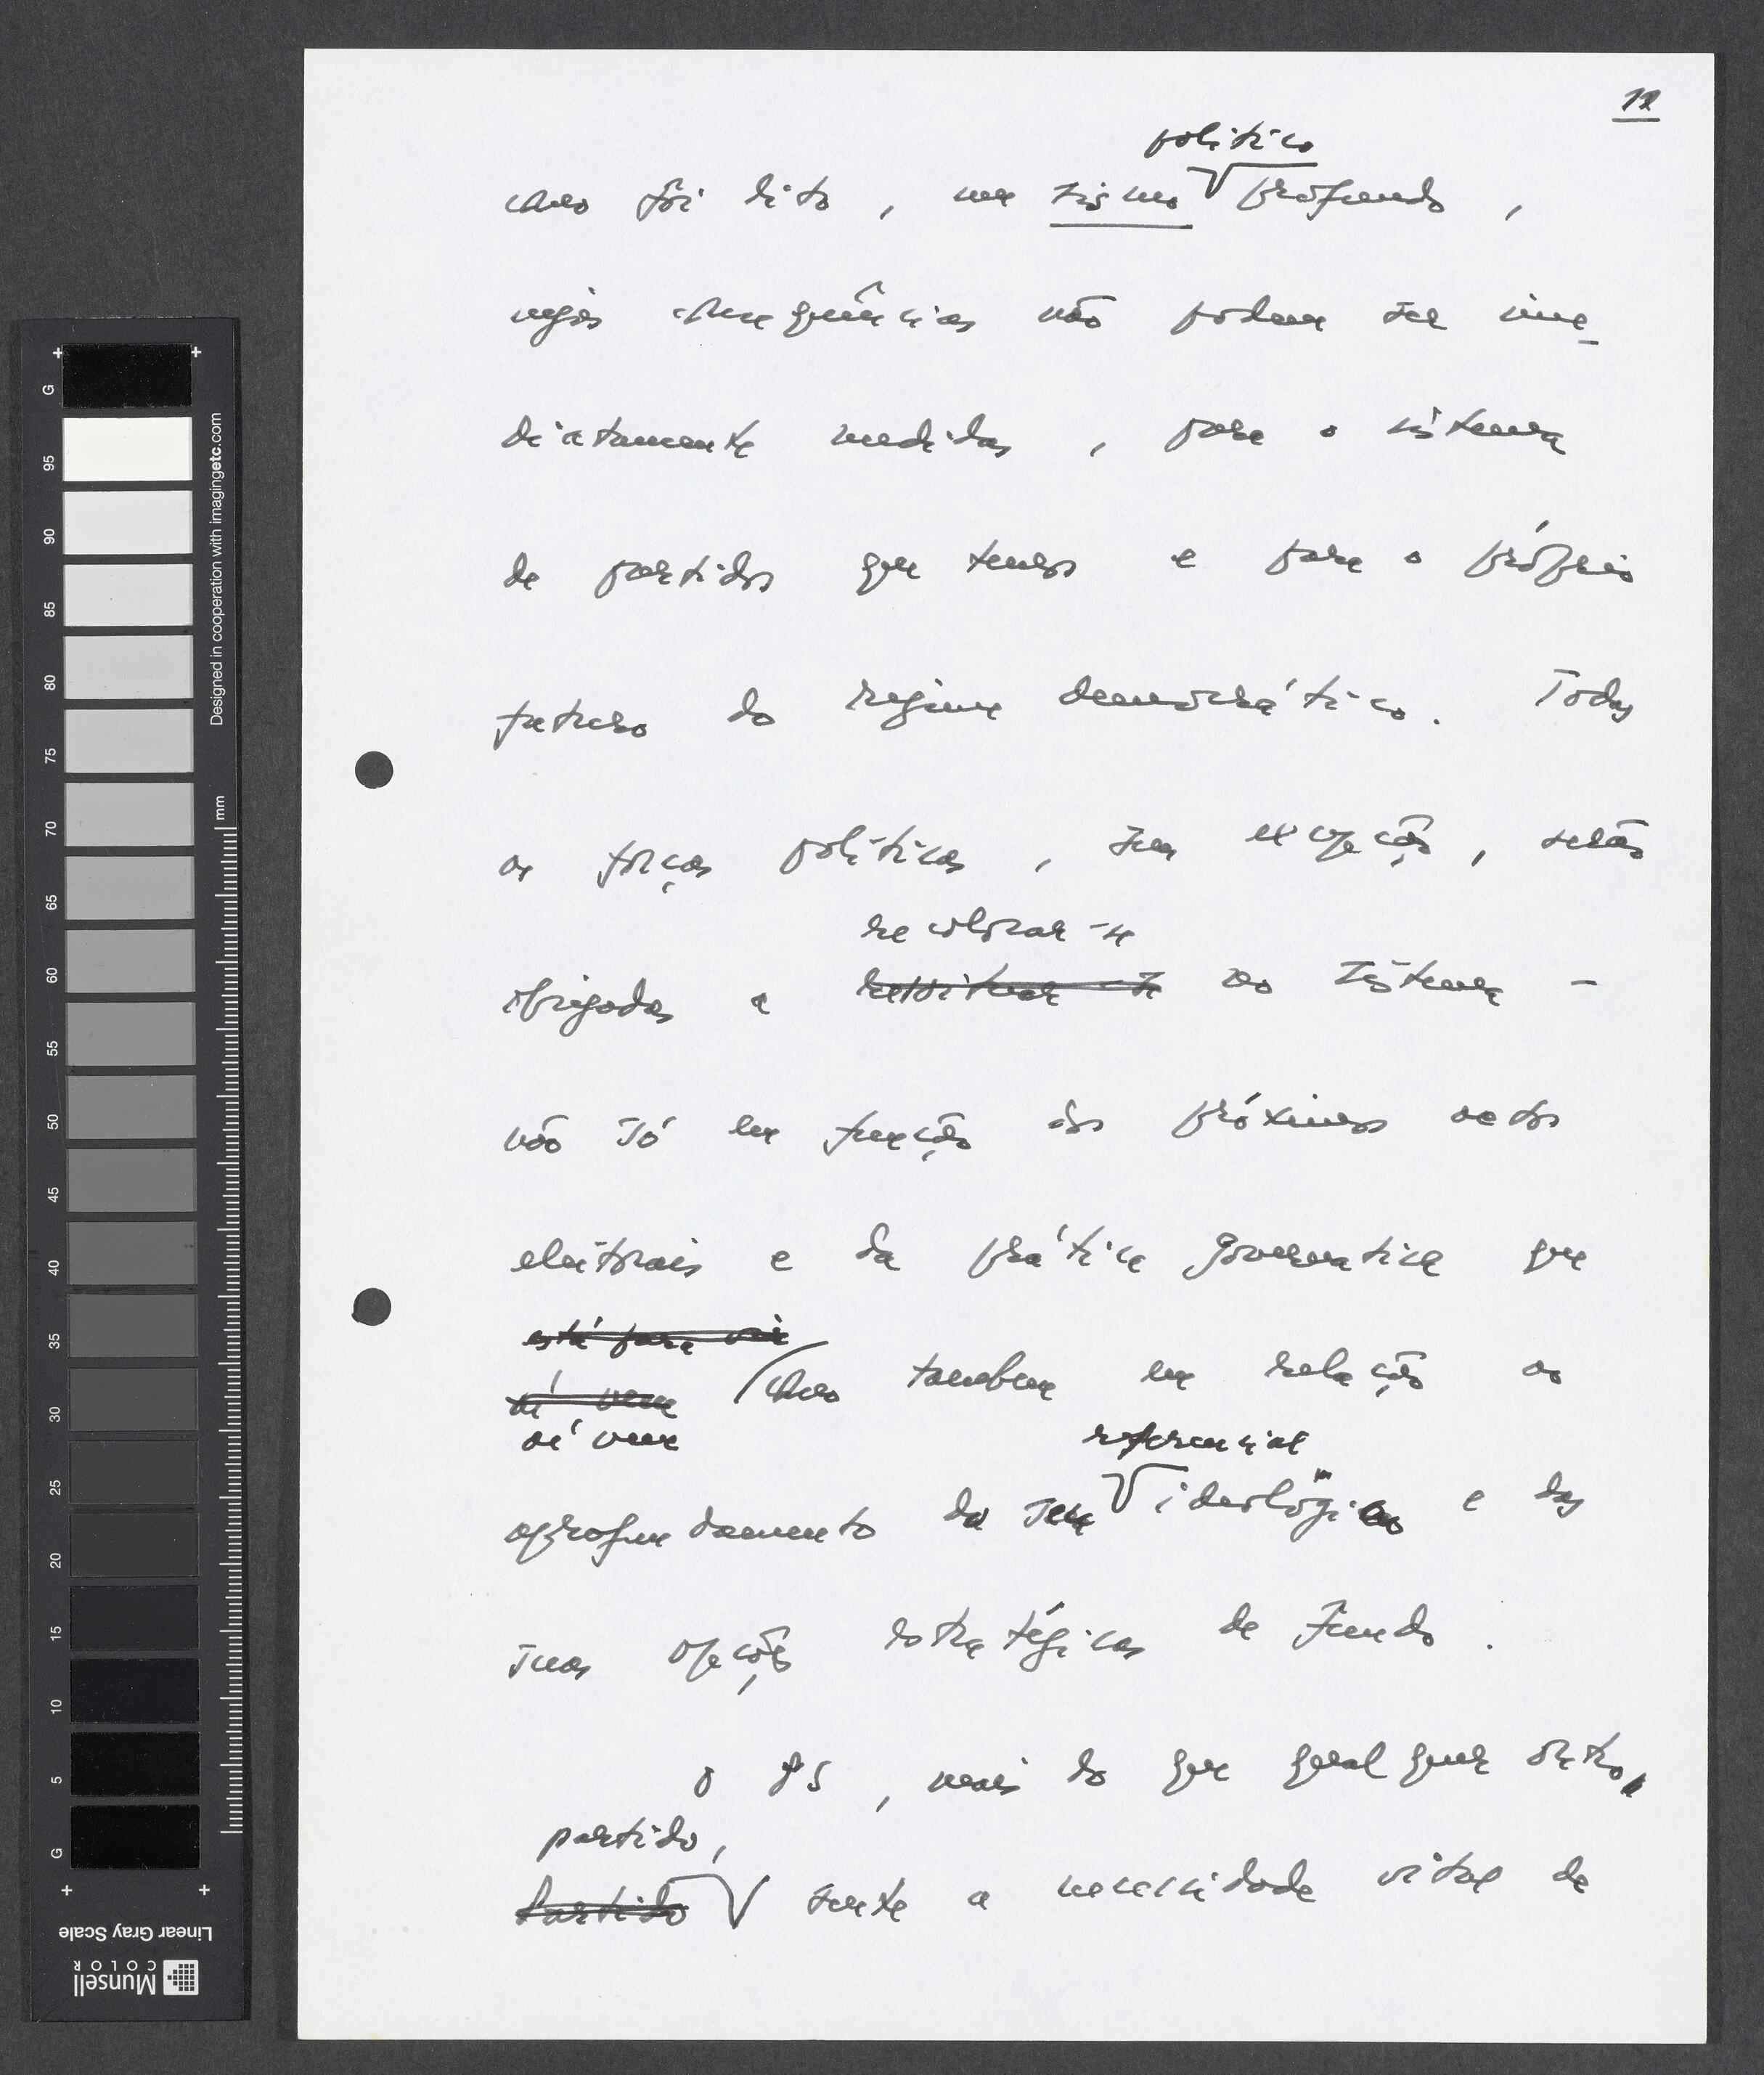 12
político
como foi dito, um sismo profundo,
cujas consequências não podem ser ime-
diatamente medidas, para o sistema
de partidos que temos e para o próprio
futuro do regime democrático. Todas
as forças políticas, sem excepção, serão
recolocar-se
obrigadas a ressituar-se no sistema -
não só em função dos próximos actos
eleitorais e da prática governativa que
está para vir
aí vem como também em relação ao
aí vem referencial
aprofundamento do seu ideológico e das
suas opções estratégicas de fundo.
O PS, mais do que qualquer outro
partido,
partido sente a necessidade vital de
G
95
90
85
80
75
70
65
60
55
50
45
40
35
30
25
20
15
10
5
G
mm
Designed in cooperation with imagingetc.com
Linear Gray Scale
Munsell
COLOR